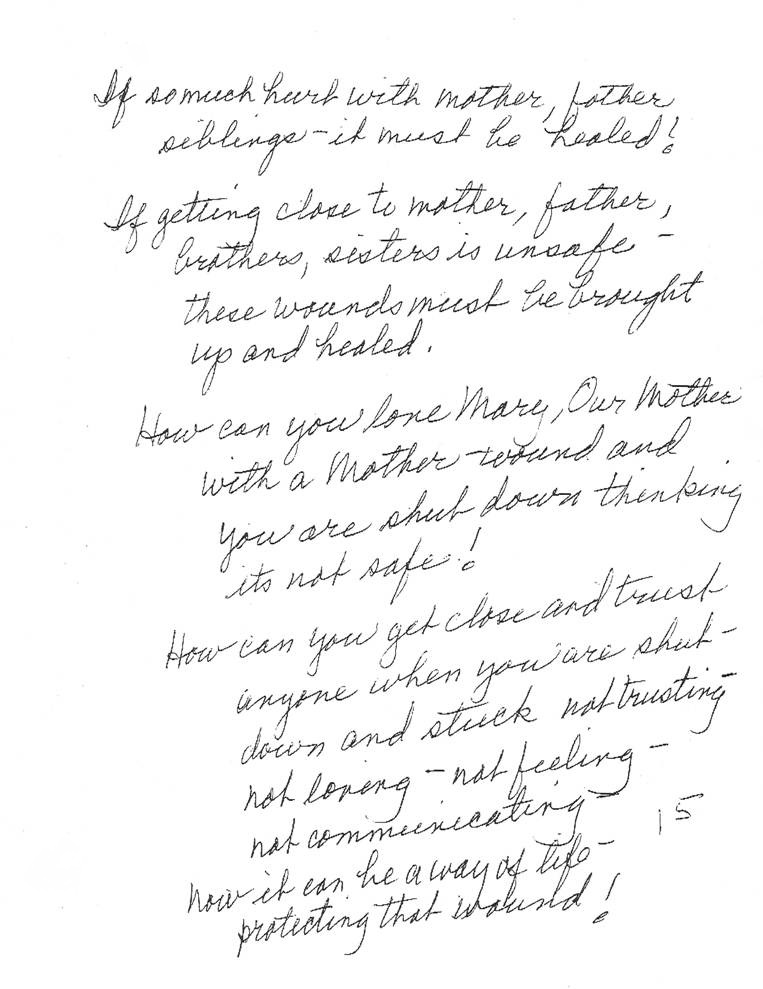 If so much hurt with mother, father
siblings - it must be healed!
If getting close to mother, father,
brothers, sisters is unsafe -
these wounds must be brought
up and healed.
How can you love Mary, Our Mother
with a Mother-wound and
you are shut down thinking
its not safe!
How can you get close and trust
anyone when you are shut-
down and stuck not trusting
not loving - not feeling -
not communicating -
15
Now it can be a way of life -
protecting that wound!